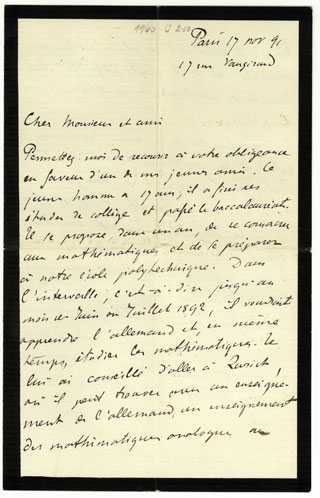 1960 G 210
Paris 17 nov 91
17 rue Vaugirard
Cher Monsieur et ami
Permettez-moi de recourir à votre obligeance
en faveur d'un de mes jeunes amis. Ce
jeune homme a 17 ans; il a fini ses
études de collège et passé le baccalauréat.
Il se propose, dans un an, de se consacrer
aux mathématiques et de se préparer
à notre école polytechnique. Dans
l'intervalle, c'est-à-dire jusqu'au
mois de Juin ou Juillet 1892, il voudrait
apprendre l'allemand et, en même
temps, étudier les mathématiques. Je
lui ai conseillé d'aller à Zurich,
où il peut trouver avec un enseigne-
ment de l'allemand, un enseignement
des mathématiques analogue au